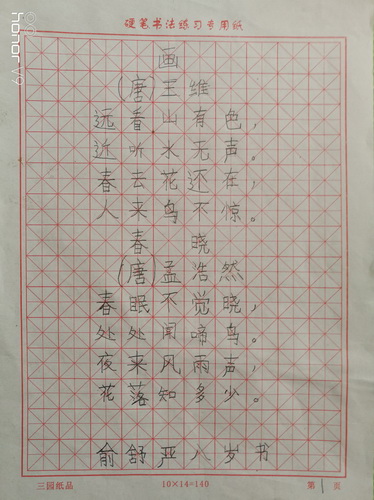 硬笔书法练习专用纸
画
(唐)王维
远看山有色,
近听水无声。
春去花还在,
人来鸟不惊。
春晓
(唐)孟浩然
春眠不觉晓,
处处闻啼鸟。
夜来风雨声,
花落知多少。
俞舒严八岁书
三园纸品 10×14=140 第1页
honor V9